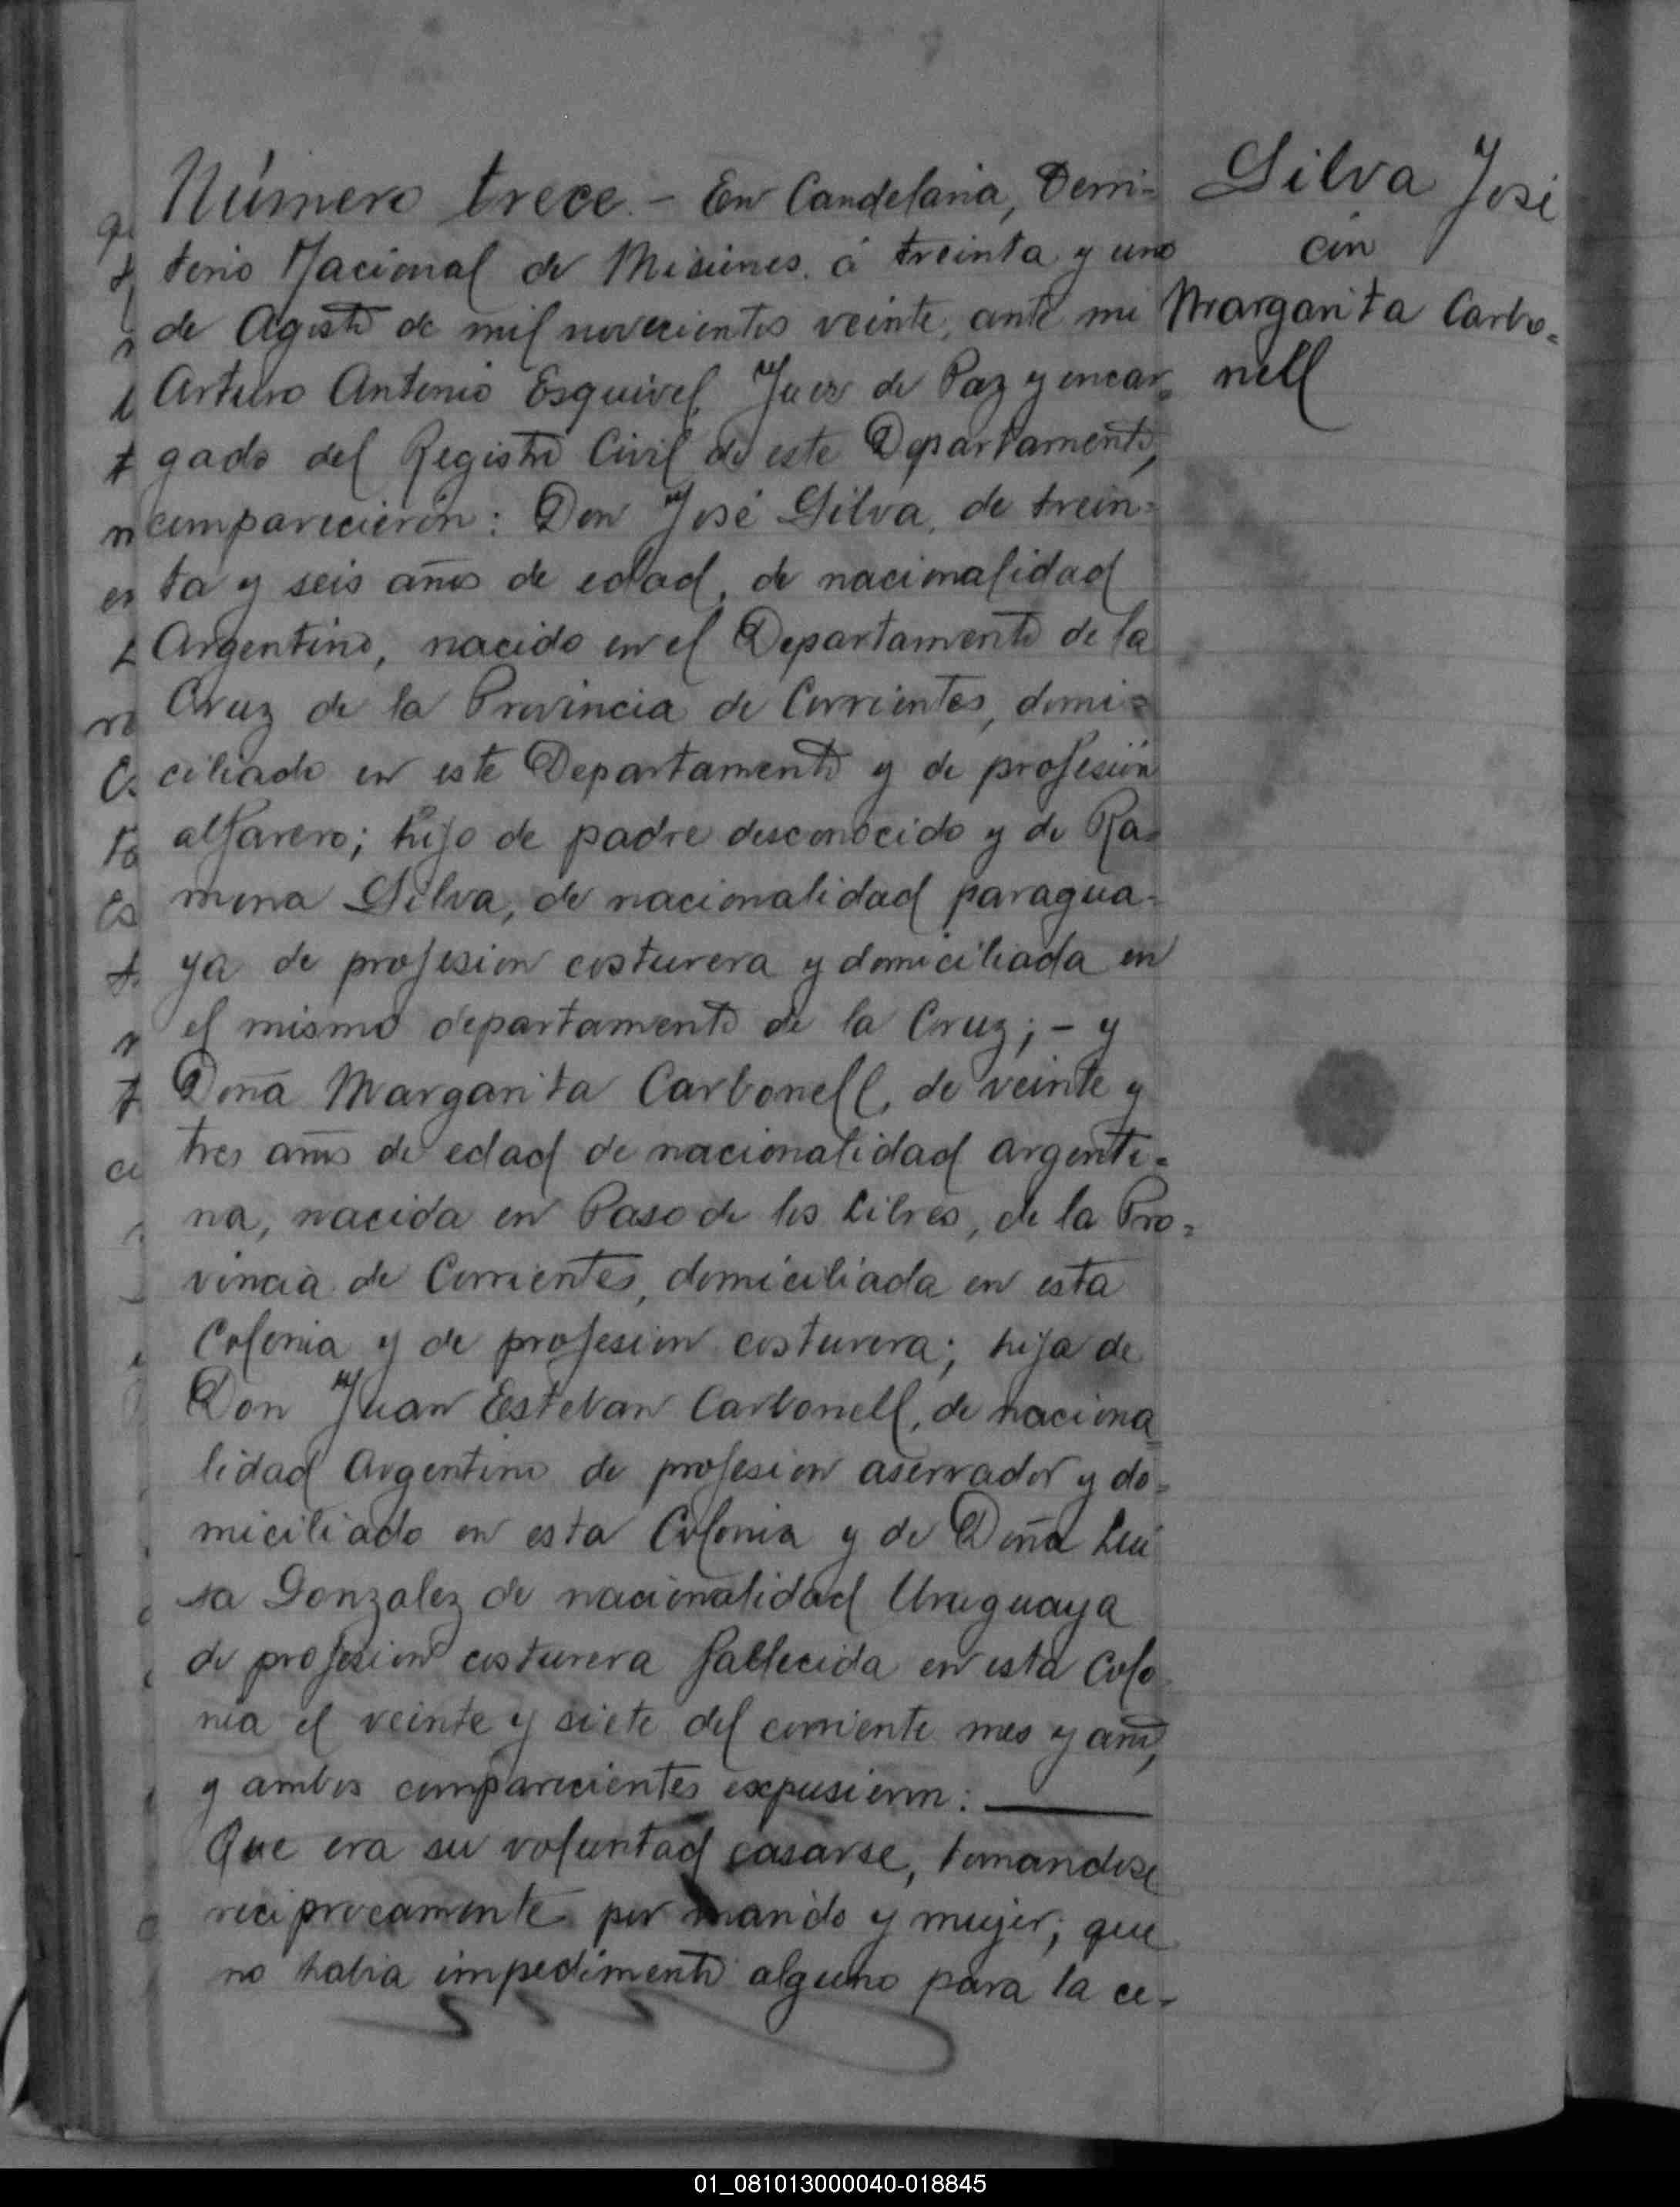 Número trece. - En Candelaria, Terri-
torio Nacional de Misiones. á treinta y uno
de Agosto de mil novecientos veinte, ante mi
Arturo Antonio Esquivel, Juez de Paz y encar-
gado del Registro Civil de este Departamento,
comparecieron: Don José Silva, de trein-
ta y seis años de edad, de nacionalidad
Argentino, nacido en el Departamento de la
Cruz de la Provincia de Corrientes, domi-
ciliado en este Departamento y de profesión
alfarero; hijo de padre desconocido y de Ra-
mona Silva, de nacionalidad paragua-
ya de profesion costurera y domiciliada en
el mismo departamento de la Cruz; - y
Doña Margarita Carbonell, de veinte y
tres años de edad de nacionalidad argenti-
na, nacida en Paso de los Libres, de la Pro-
vincia de Corrientes, domiciliada en esta
Colonia y de profesion costurera; hija de
Don Juan Esteban Carbonell, de naciona
lidad Argentino de profesion aserrador y do-
miciliado en esta Colonia y de Doña Lui
sa Gonzalez de nacionalidad Uruguaya
de profesion costurera fallecida en esta Colo
nia el veinte y siete del corriente mes y año,
y ambos comparecientes expusieron:
Que era su voluntad casarse, tomandose
reciprocamente por marido y mujer; que
no habia impedimento alguno para la ce-
Silva José
con
Margarita Carbo-
nell
01_081013000040-018845